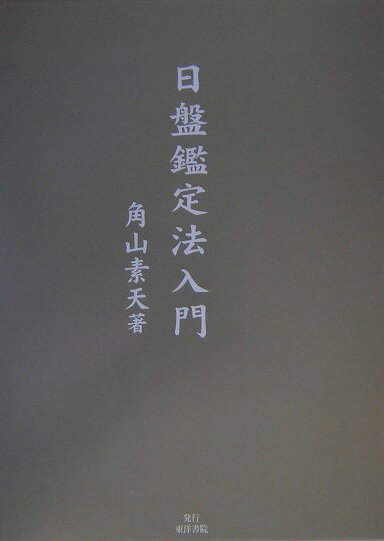 日盤鑑定法入門
角山素天著
発行
東洋書院